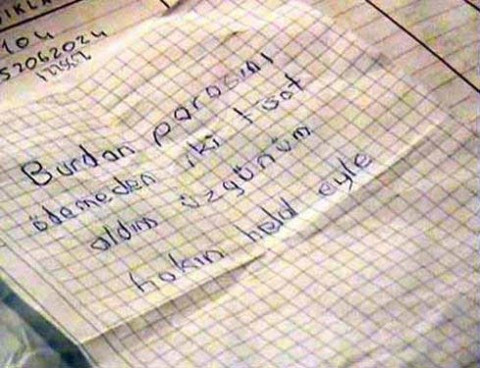 104
52062024
Burdan parasını
ödemeden iki tost
aldım üzgünüm
hakın helal eyle